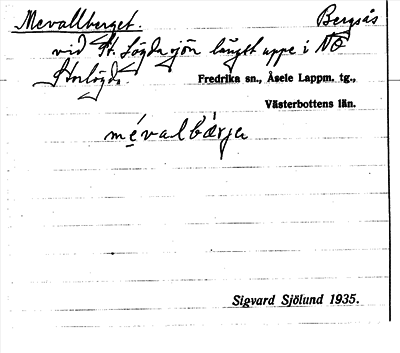 Mevallberget. Bergsås
vid St. Lögdasjön längst uppe i NO
Storlögda. Fredrika sn., Åsele Lappm. tg.,
Västerbottens län.
mévalbærjə
Sigvard Sjölund 1935.